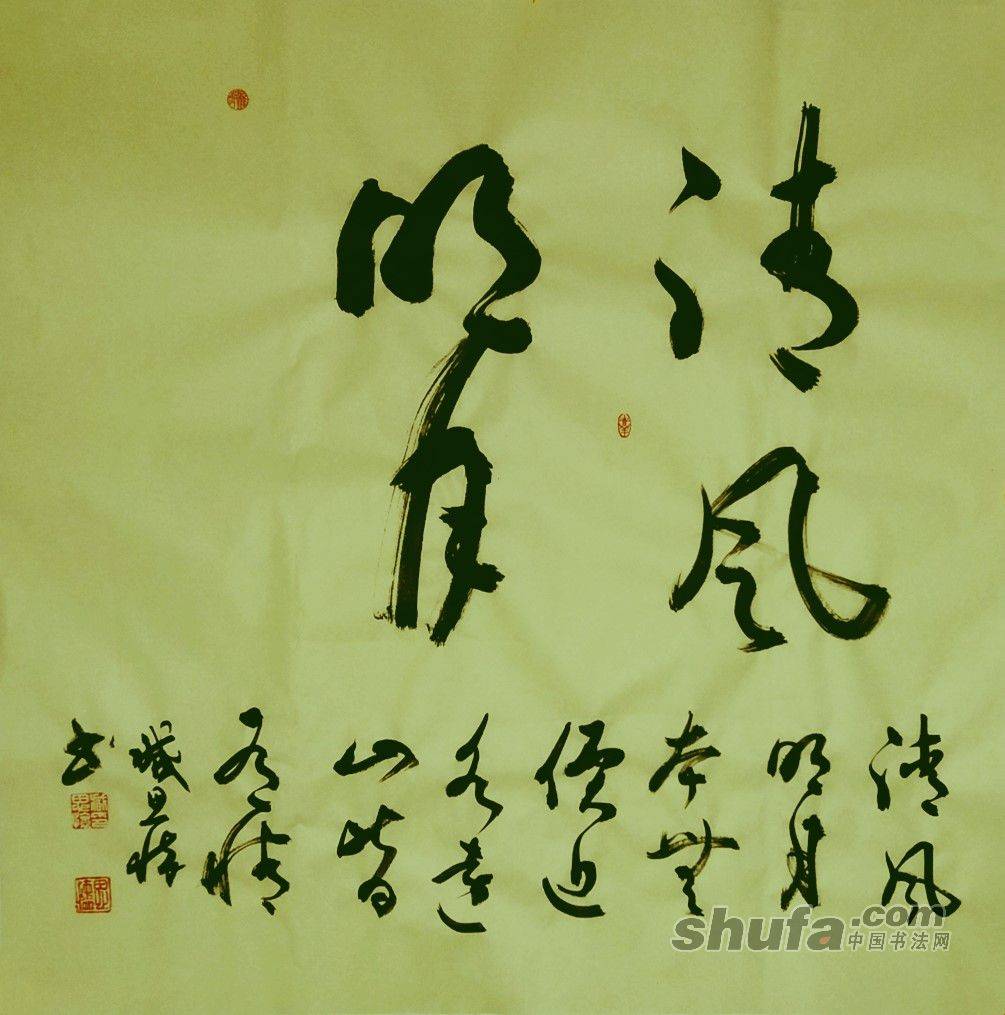 清风
明月
清风
明月
本無
價近
水遠
山皆
有情
书
shufa.com
中国书法网